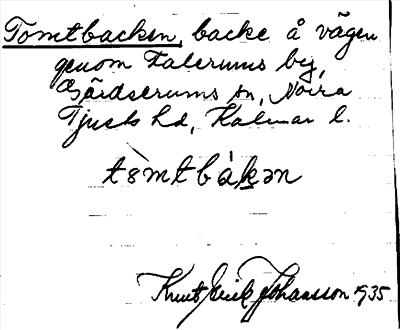 Tomtbacken, backe å vägen
genom Falerums by,
Gärdserums sn, Norra
Tjusts hd, Kalmar l.
tòmtbàkən
Knut Erik Johansson 1935